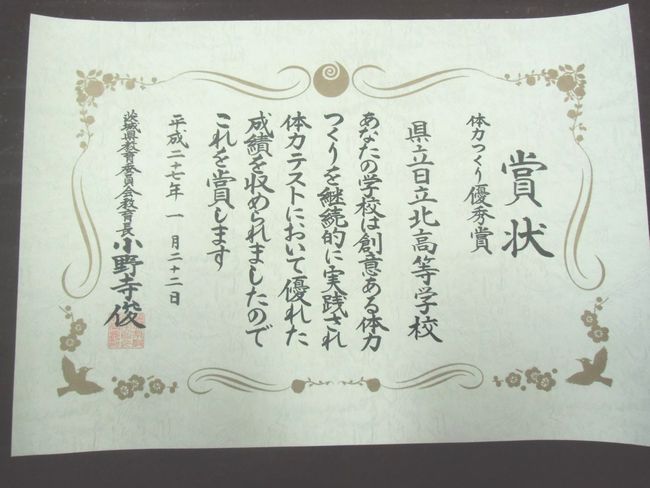 賞状
体力つくり優秀賞
県立日立北高等学校
あなたの学校は創意ある体力
つくりを継続的に実践され
体力テストにおいて優れた
成績を収められましたので
これを賞します
平成二十七年一月二十二日
茨城県教育委員会教育長 小野寺俊